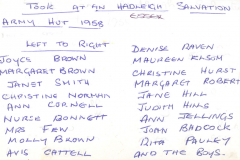 TOOK AT AN HADLEIGH SALVATION
ARMY HUT 1958
LEFT TO RIGHT
JOYCE BROWN
MARGARET BROWN
JANET SMITH
CHRISTINE NORMAN
ANN CORNELL
NURCE BONNETT
MRS FEW
MOLLY BROWN
AVIS CATTELL
DENISE RAVEN
MAUREEN ELSOM
CHRISTINE HURST
MARGARET ROBERT
JANE HILL
JUDITH HILLS
ANN JELLINGS
JOAN BADCOCK
RITA PAULEY
AND THE BOYS.